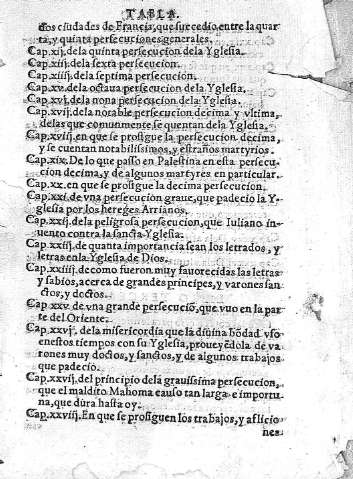 TABLA.
dos ciudades de Francia, que sucedio entre la quar
ta, y quinta persecuciones generales.
Cap. xij. de la quinta persecucion de la Yglesia.
Cap. xiij. de la sexta persecucion.
Cap. xiiij. de la septima persecucion.
Cap. xv. de la octaua persecucion de la Yglesia.
Cap. xvj. de la nona persecucion de la Yglesia.
Cap. xvij. de la notable persecucion decima, y vltima,
de las que comunmente se quentan de la Yglesia.
Cap. xviij. en que se prosigue la persecucion decima,
y se cuentan notabilissimos, y estraños martyrios.
Cap. xix. De lo que passo en Palestina en esta persecu-
cion decima, y de algunos martyres en particular.
Cap. xx. en que se prosigue la decima persecucion.
Cap. xxj. de vna persecucion graue, que padecio la Y-
glesia por los hereges Arrianos.
Cap. xxij. de la peligrosa persecucion, que Iuliano in-
uento contra la sancta Yglesia.
Cap. xxiij. de quanta importancia sean los letrados, y
letras en la Yglesia de Dios.
Cap. xxiiij. de como fueron muy fauorecidas las letras
y sabios, acerca de grandes principes, y varones san-
ctos, y doctos.
Cap. xxv. de vna grande persecuciō, que vuo en la par
te del Oriente.
Cap. xxvj. de la misericordia que la diuina bōdad vso
en estos tiempos con su Yglesia, proueyēdola de va-
rones muy doctos, y sanctos, y de algunos trabajos
que padecio.
Cap. xxvij. del principio de la grauissima persecucion,
que el maldito Mahoma causo tan larga e importu-
na, que dura hasta oy.
Cap. xxviij. En que se prosiguen los trabajos, y aflicio
nes